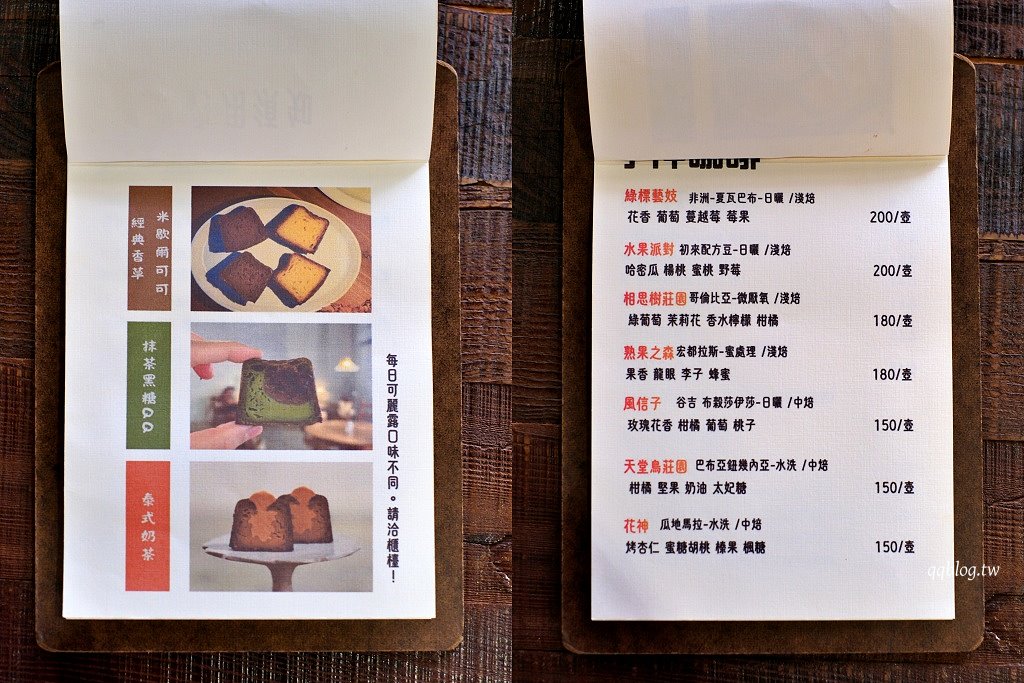 米歇爾可可
經典香草
抹茶黑糖QQ
泰式奶茶
每日可麗露口味不同。請洽櫃檯！
手沖咖啡
綠標藝妓 非洲-夏瓦巴布-日曬 /淺焙
花香 葡萄 蔓越莓 莓果 200/壺
水果派對 初來配方豆-日曬 /淺焙
哈密瓜 楊桃 蜜桃 野莓 200/壺
相思樹莊園 哥倫比亞-微厭氧 /淺焙
綠葡萄 茉莉花 香水檸檬 柑橘 180/壺
熟果之森 宏都拉斯-蜜處理 /淺焙
果香 龍眼 李子 蜂蜜 180/壺
風信子 谷吉 布穀莎伊莎-日曬 /中焙
玫瑰花香 柑橘 葡萄 桃子 150/壺
天堂鳥莊園 巴布亞鈕幾內亞-水洗 /中焙
柑橘 堅果 奶油 太妃糖 150/壺
花神 瓜地馬拉-水洗 /中焙
烤杏仁 蜜糖胡桃 榛果 楓糖 150/壺
qqblog.tw